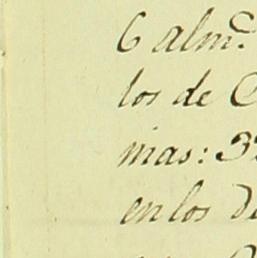 6 alm.s
los de
mas: 3
en los de